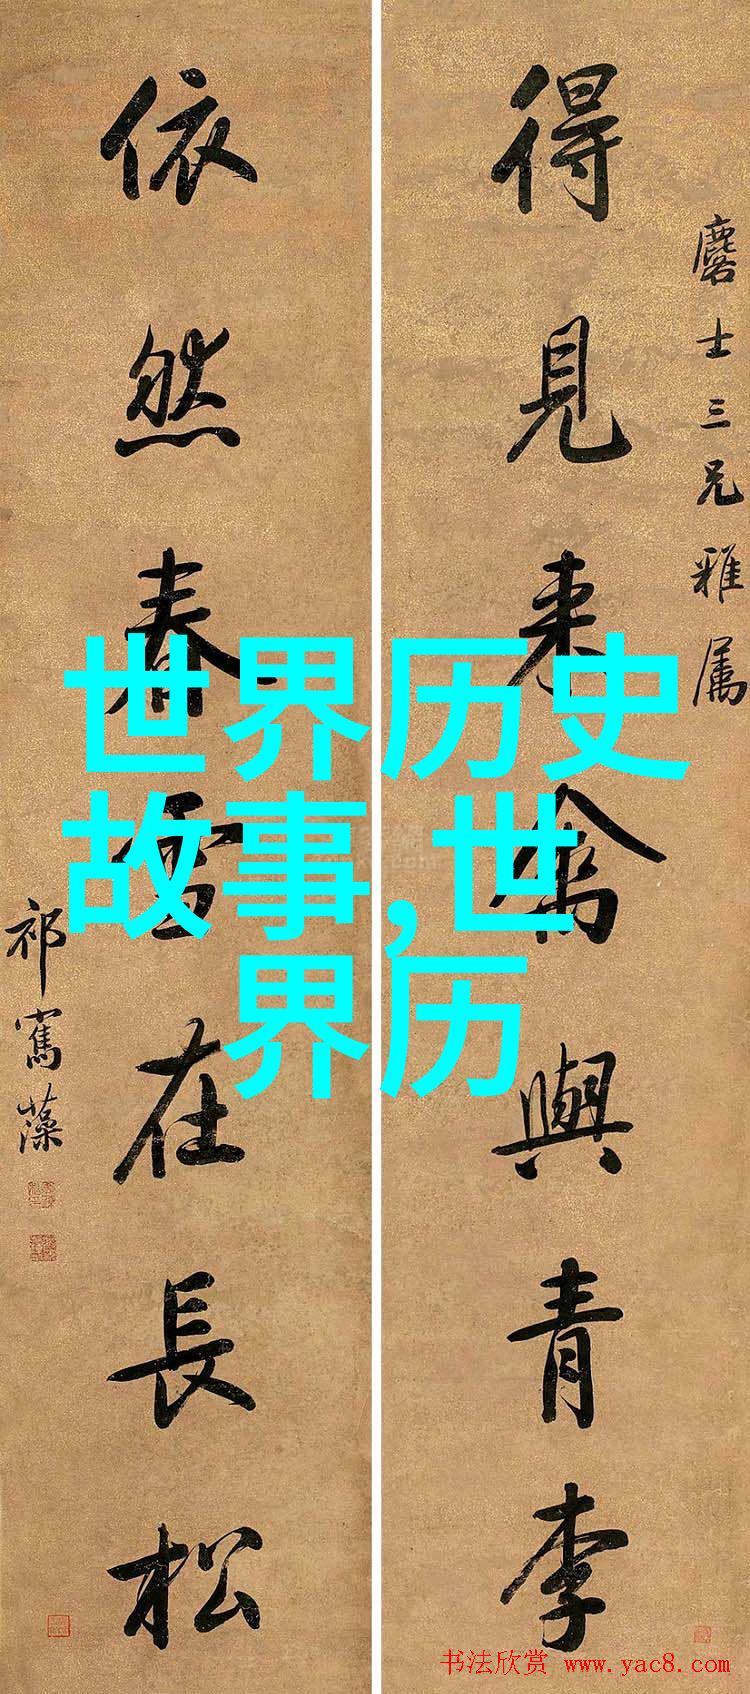 得見来禽與青李
麐士三兄雅屬
依然春雪在長松
祁寯藻
世界历史
故事,世
界历
书法欣赏 www.yac8.com